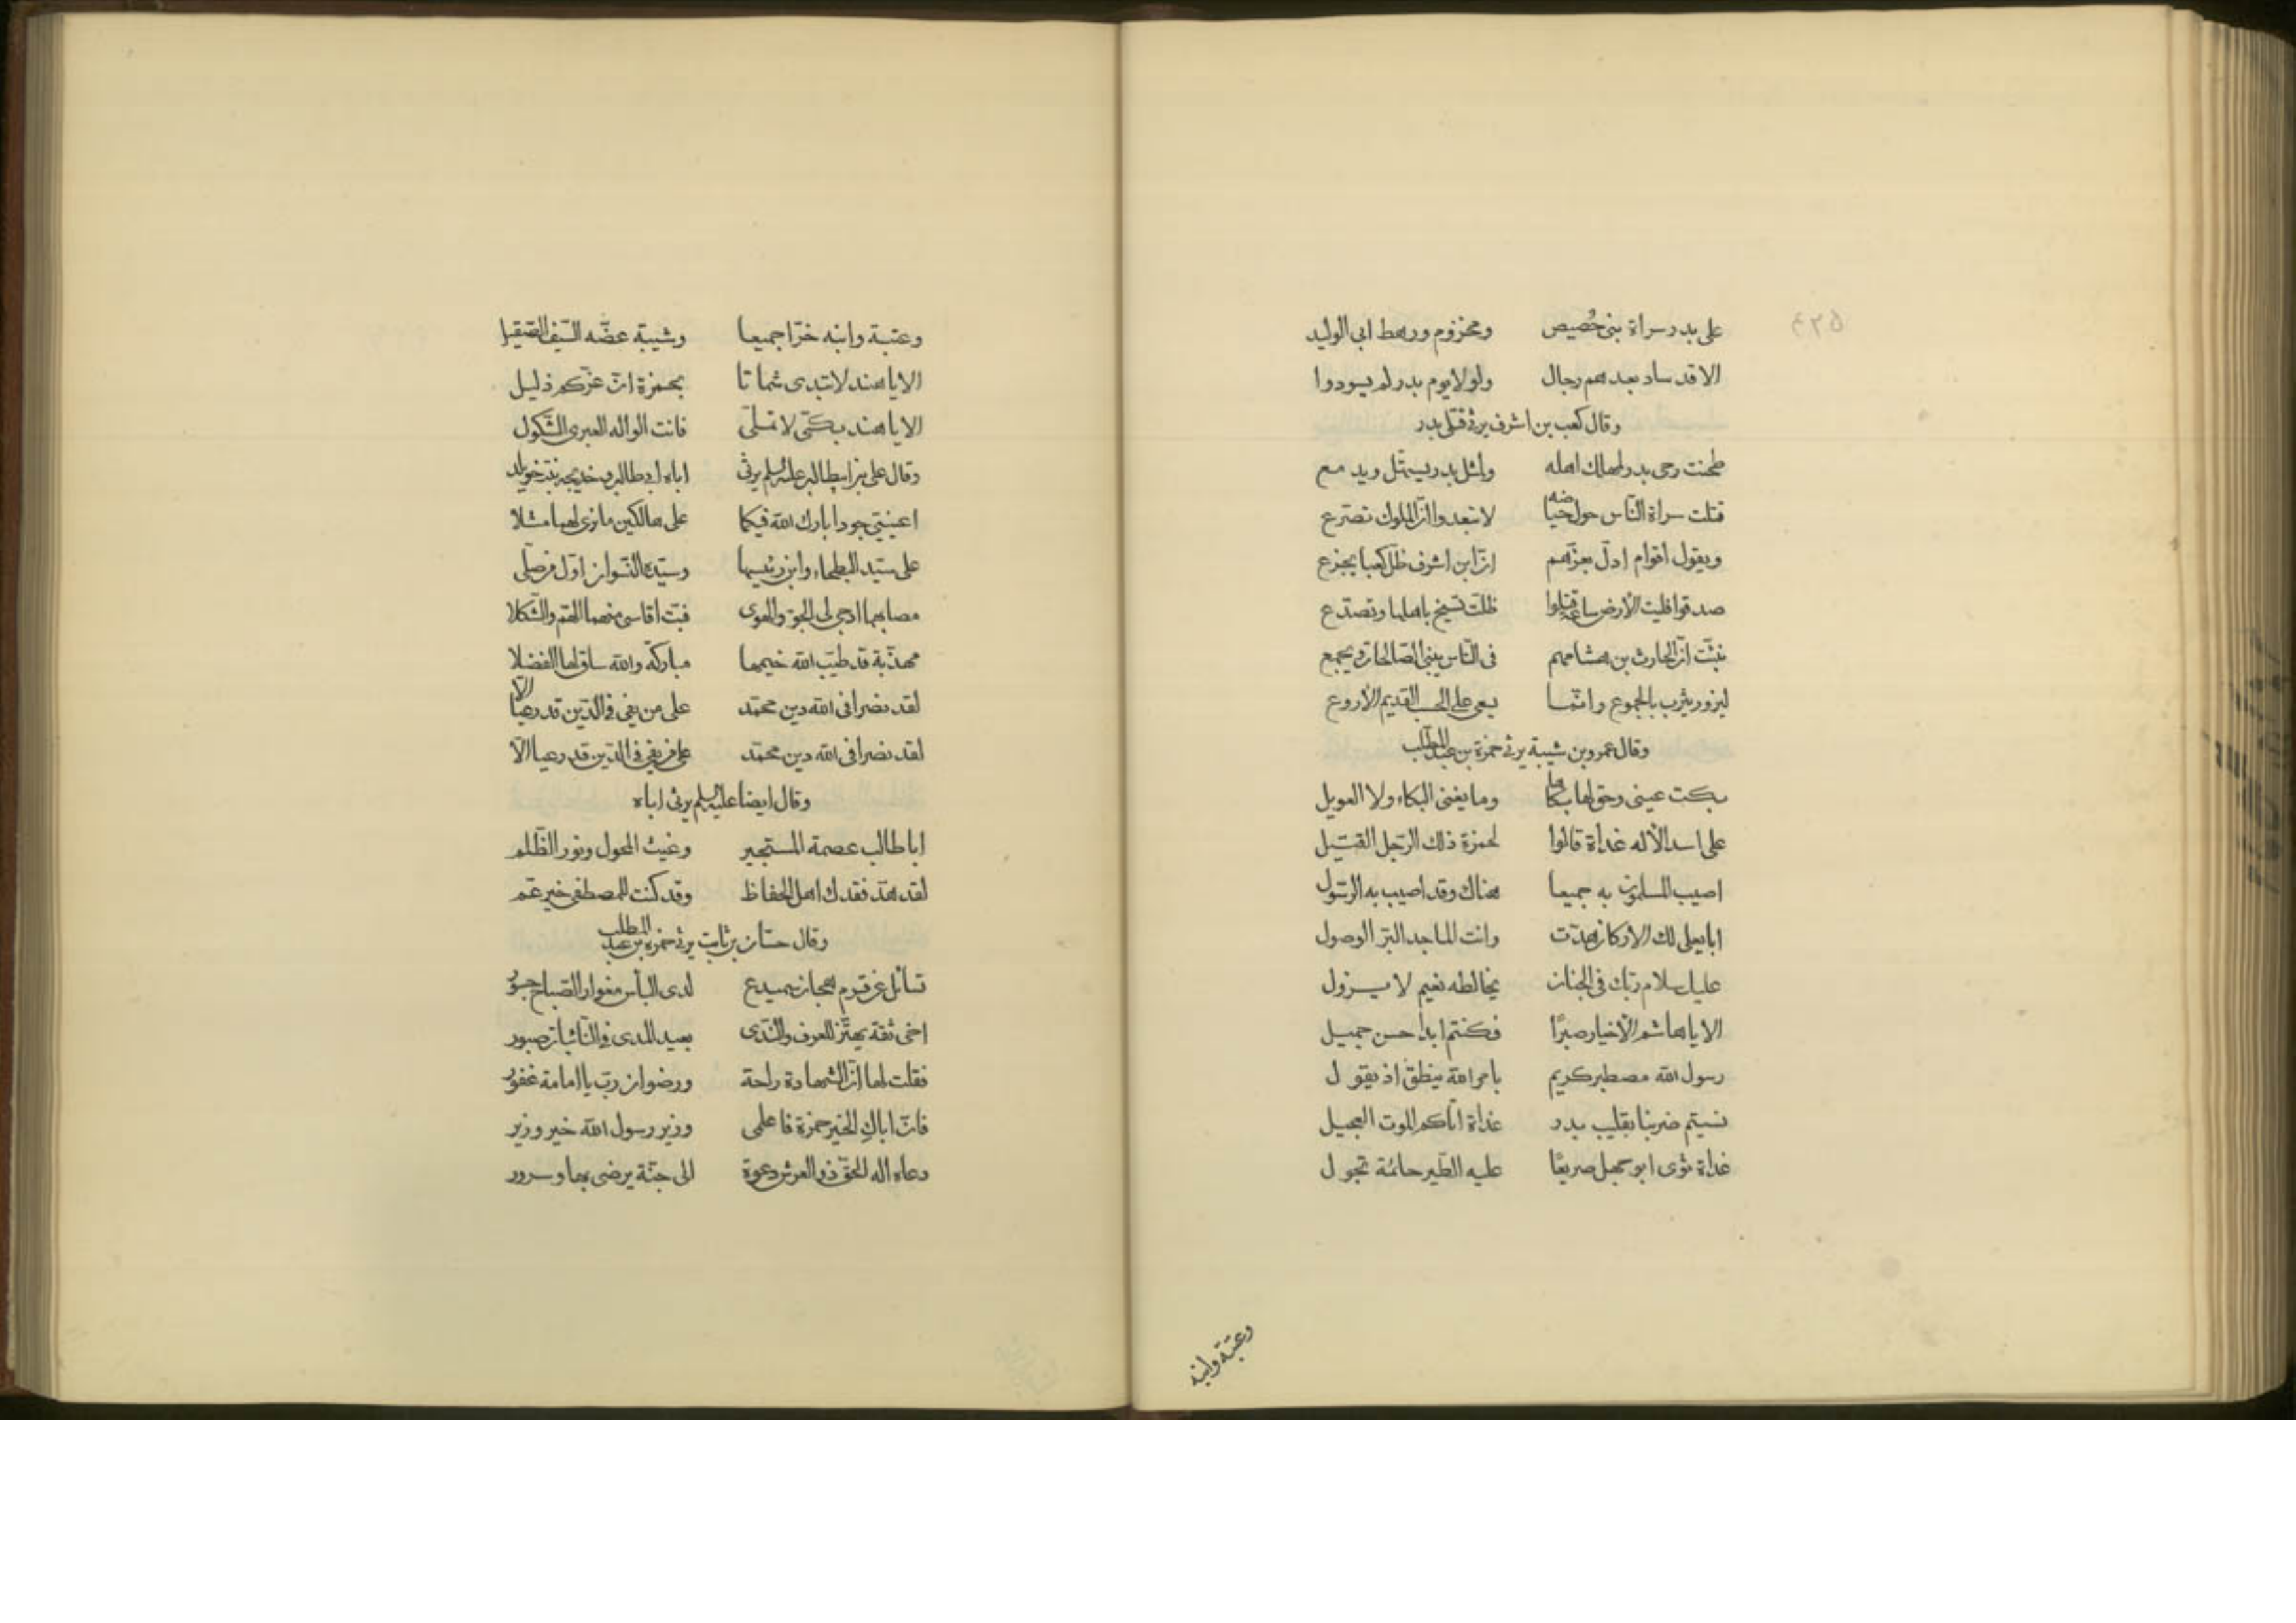 على بدر سراة بنى حُصيص ومخزوم ورهط ابى الوليد
الا قد ساد بعدهم رجال ولولا يوم بدر لم يسودوا
وقال كعب بن اشرف يرثى قتلى بدر
طحنت رحى بدر لمهلك اهله ولمثل بدر يستهل ويدمع
قتلت سراة النّاس حول حياضه لا تبعدوا انّ الملوك تصرّع
ويقول اقوام اذلّ بعزّهم انّ ابن اشرف ظلّ كعبا يجزع
صدقوا فليت الأرض ساعة قتلوا ظلّت تسيخ باهلها وتصدّع
نبئت انّ الحارث بن هشامهم فى النّاس يبنى الصّالحات ويجمع
ليزور يثرب بالجموع وانّما يسعى على الحسب القديم الأروع
وقال عمرو بن شيبة يرثى حمزة بن عبد المطّلب
بكت عينى وحق لها بكاها وما يغنى البكاء ولا العويل
على اسد الأله غداة قالوا لحمزة ذلك الرّجل القتيل
اصيب المسلمون به جميعا هناك وقد اصيب به الرّسول
ابا يعلى لك الأركان هدّت وانت الماجد البرّ الوصول
عليك سلام ربّك فى الجنان يخالطه نعيم لا يزول
الا يا هاشم الأخيار صبرًا فكنتم ابدا حسن جميل
رسول الله مصطبر كريم بامر الله ينطق اذ يقول
نسيتم ضربنا بقليب بدر غداة اتاكم الموت العجيل
غداة ثوى ابو جهل صريعًا عليه الطّير حائمة تجول
وعتبة وابنه
وعتبة وابنه خرّا جميعا وشيبة عضّه السّيف الصّقيل
الا يا هند لا تبدى شماتا بحمزة انّ عزّكم ذليل
الا يا هند بكّى لا تملّى فانت الواله العبرى الثّكول
وقال على بن ابيطالب عليه السلم يرثى اباه ابى طالب وخديجه بنت خويلد
اعينىّ جودا بارك الله فيكما على هالكين ما نرى لهما مثلا
على سيّد البطحاء وابن رئيسها وسيّدة النّسوان اوّل من صلّى
مصابهما ادجى لى الجوّ والهوى فبتّ اقاسى منهما الهمّ والثّكلا
مهذّبة قد طيّب الله خيمها مباركة والله ساق لها الفضلا
لقد نصرا فى الله دين محمّد على من بغى فى الدّين قد رعيا الّا
لقد نصرا فى الله دين محمّد على من بغى فى الدّين قد رعيا الّا
وقال ايضا عليه السلم يرثى اباه
ابا طالب عصمة المستجير وغيث المحول ونور الظّلم
لقد هدّ فقدك اهل الحفاظ وقد كنت للمصطفى خير عمّ
وقال حسّان بن ثابت يرثى حمزه بن عبد المطلب
تسائل عن قرم هجان سميدع لدى البأس مغوار الصّباح جسور
اخى ثقة يهتزّ للعرف والنّدى بعيد المدى فى النّائبات صبور
فقلت لها انّ الشّهادة راحة ورضوان ربّ يا امامة غفور
فانّ اباكِ الخير حمزة فاعلمى وزير رسول الله خير وزير
دعاه اله الحقّ ذو العرش دعوة الى جنّة يرضى بها وسرور